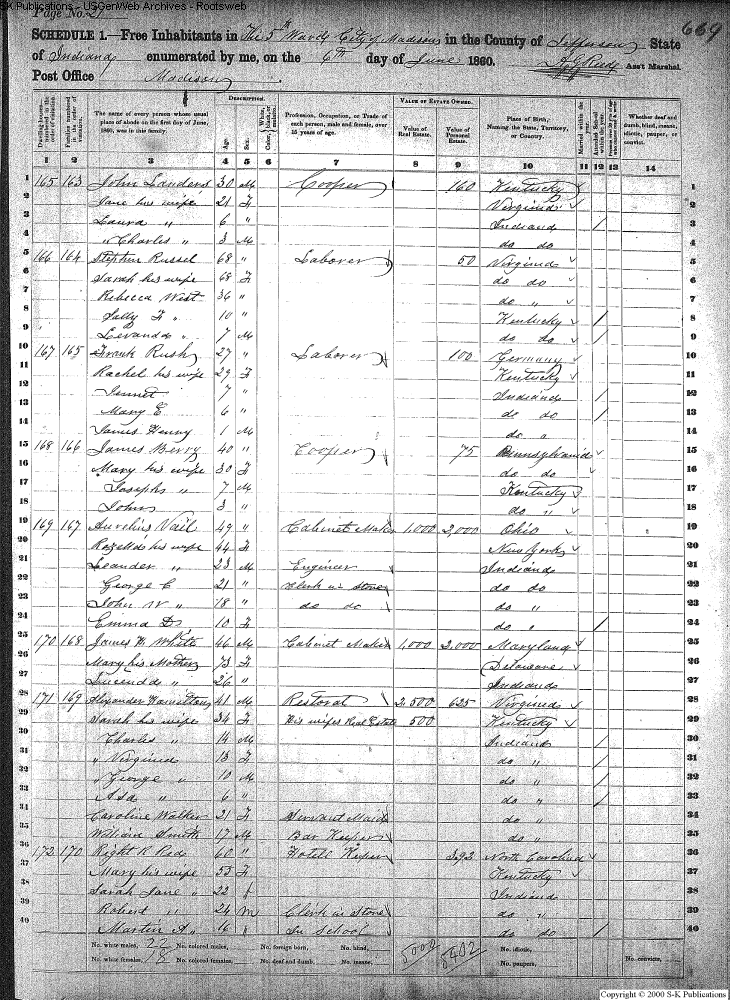 S-K Publications - USGenWeb Archives - Rootsweb
Page No. 21
669
SCHEDULE 1.—Free Inhabitants in The 5th Ward City of Madison in the County of Jefferson State
of Indiana enumerated by me, on the 6th day of June 1860. Ass't Marshal.
Post Office Madison
Dwelling-houses— numbered in the order of visitation
Families numbered in the order of visitation.
The name of every person whose usual place of abode on the first day of June, 1860, was in this family.
DESCRIPTION.
Age.
Sex.
Color, White, black, or mulatto.
Profession, Occupation, or Trade of each person, male and female, over 15 years of age.
VALUE OF ESTATE OWNED.
Value of Real Estate.
Value of Personal Estate.
Place of Birth, Naming the State, Territory, or Country.
Married within the year.
Attended School within the year.
Whether deaf and dumb, blind, insane, idiotic, pauper, or convict.
1 2 3 4 5 6 7 8 9 10 11 12 13 14
1 165 163 John Landers 30 M Cooper 160 Kentucky 1
2 Jane his wife 21 F Virginia 2
3 Laura " 6 " Indiana / 3
4 " Charles " 3 M do do 4
5 166 164 Stephen Russel 68 " Laborer 50 Virginia 5
6 Sarah his wife 68 F do do 6
7 Rebecca West 36 " do " 7
8 Sally F " 10 " Kentucky / 8
9 " 7 M do do / 9
10 167 165 Frank Rush 27 " Laborer 100 Germany 10
11 Rachel his wife 29 F Kentucky 11
12 Jennet 7 " Indiana / 12
13 Mary E 6 " do do / 13
14 James Henry 1 M do " 14
15 168 166 James Berry 40 " Cooper 75 Pennsylvania 15
16 Mary his wife 30 F do do 16
17 Josephs " 7 M Kentucky 17
18 John 3 " do " 18
19 169 167 Aurelius Vail 49 " Cabinet Maker 1,000 2,000 Ohio 19
20 Rozella his wife 44 F New York 20
21 Leander " 23 M Engineer Indiana 21
22 George C 21 " Clerk in Store do do 22
23 John W " 18 " do do do " 23
24 Emma D 10 F do " / 24
25 170 168 James H White 46 M Cabinet Maker 1,000 2,000 Maryland 25
26 Mary his Mother 73 F Delaware 26
27 Lucinda " 26 " Indiana 27
28 171 169 Alexander Hamilton 41 M Restorat 2,500 625 Virginia 28
29 Sarah his wife 34 F His wifes Real Estate 500 Kentucky 29
30 Charles " 14 M Indiana / 30
31 " Virginia 13 F do " / 31
32 " George " 10 M do " / 32
33 Ada " 6 " do " / 33
34 Caroline Walker 21 F Servant Maid do " 34
35 William Smith 17 M Bar Keeper do " 35
36 172 170 Right R Rea 60 " Hotell Keeper 392 North Carolina 36
37 Mary his wife 55 F Kentucky 37
38 Sarah Jane " 22 f Indiana 38
39 Robert " 24 m Clerk in Store do " 39
40 Martin A " 16 " In School do do / 40
No. white males, 22 No. colored males, No. foreign born, No. blind, 5000 8402 No. idiotic,
No. white females, 18 No. colored females, No. deaf and dumb, No. insane, No. paupers, No. convicts,
Copyright © 2000 S-K Publications